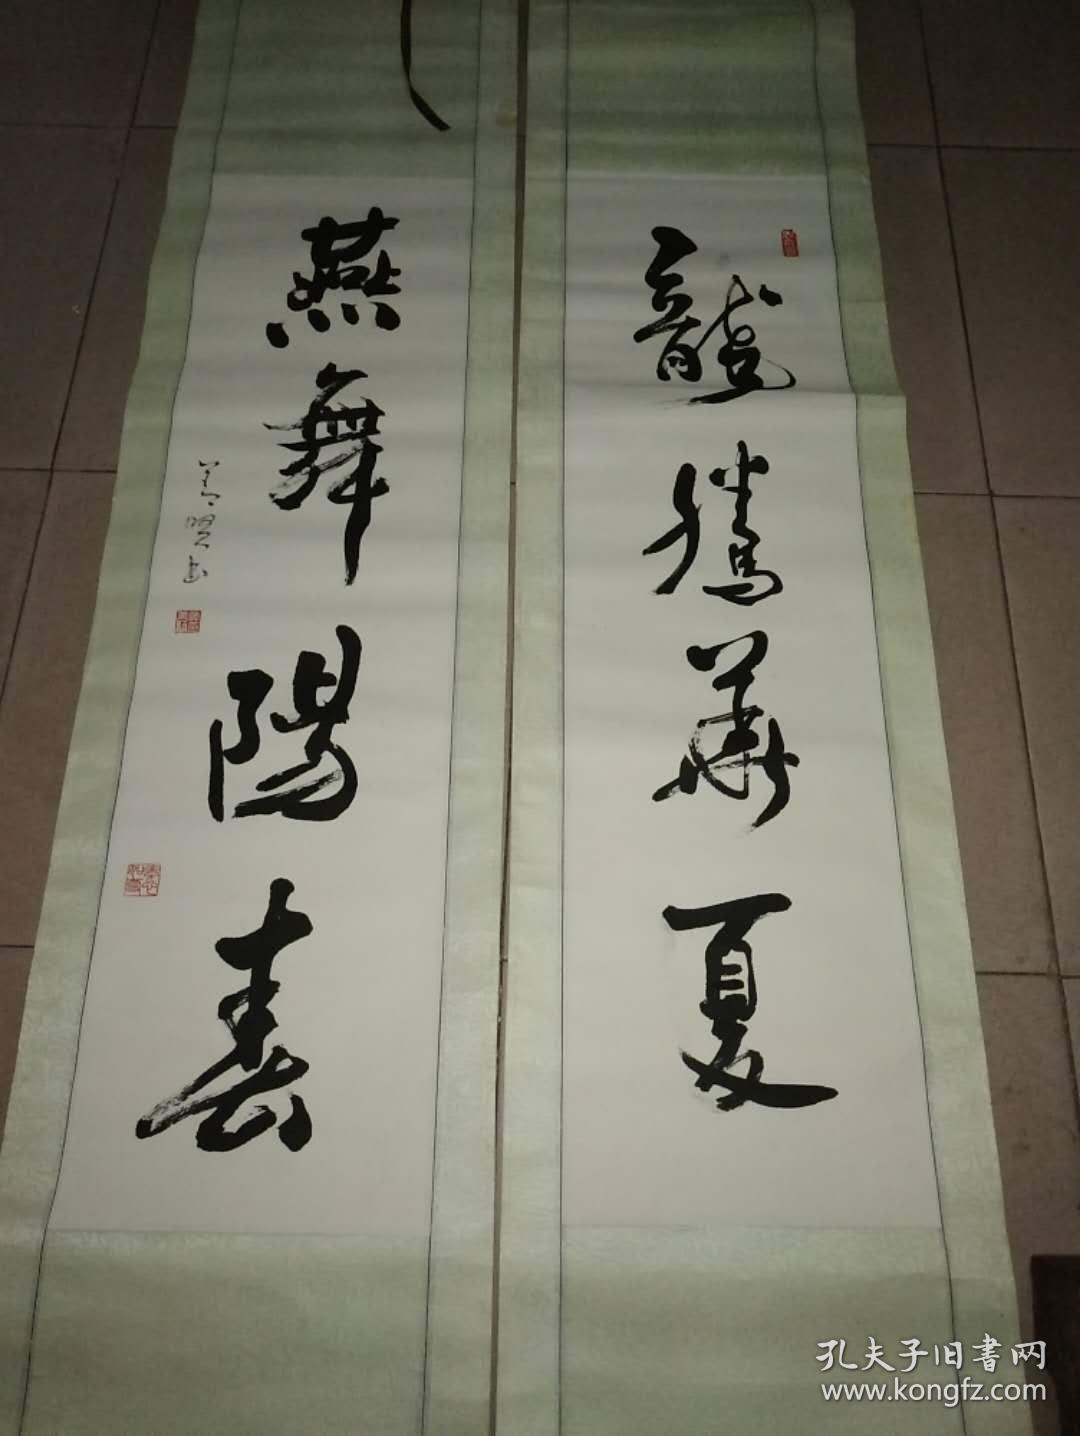 龍騰華夏
燕舞陽春
孔夫子旧書网
www.kongfz.com